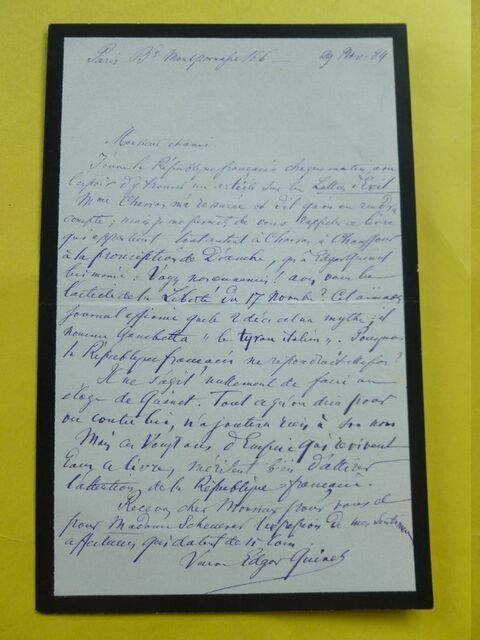 Paris Bd Montparnasse 156 — 29 Nov - 84
Monsieur et ami
J'ouvre la République française chaque matin, avec
l'espoir d'y trouver un article sur les Lettres d'Exil
Mme Charras m'a rassurée et dit qu'on en rendra
compte; mais je me permets de vous rappeler ce livre
qui appartient tout autant à Charras, à Chauffour
à la proscription de Décembre, qu'à Edgar Quinet
lui même. Voyez nos ennemis! avez vous lu
l'article de la Liberté du 17 Novembre? Ce
journal affirme que le 2 décembre est un mythe; il
nomme Gambetta "le tyran italien". Pourquoi
la République française ne répondrait-elle pas?
Il ne s'agit nullement de faire un
éloge de Quinet. Tout ce qu'on dira pour
ou contre lui, n'ajoutera rien à son nom
Mais ces Vingt ans d'Empire qui revivent
dans ce livre, méritent bien d'attirer
l'attention de la République française.
Recevez cher Monsieur pour vous et
pour Madame Scheurer l'expression de mes sentiments
affectueux qui datent de si loin.
Veuve Edgar Quinet